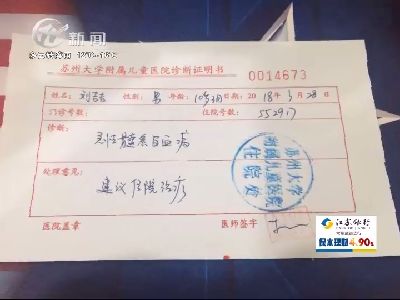 新闻
苏州大学附属儿童医院诊断证明书
0014673
姓名: 刘 性别: 男 年龄: 日期: 2018年3月28日
门诊号数: 住院号数: 552917
诊断:
急性髓系白血病
处理意见:
建议住院治疗
苏州大学
附属儿童医院
住院处
医院盖章 医师签字
江苏银行
4.90%